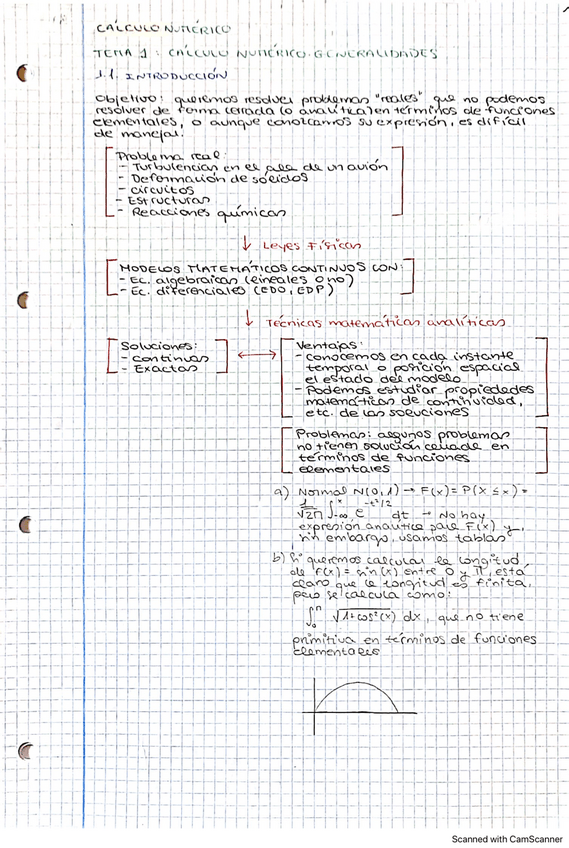 CÁLCULO NUMÉRICO
TEMA 1: CÁLCULO NUMÉRICO. GENERALIDADES
1.1. INTRODUCCIÓN
Objetivo: queremos resolver problemas "reales" que no podemos
resolver de forma cerrada (o analítica) en términos de funciones
elementales, o aunque conozcamos su expresión, es difícil
de manejar.
Problema real:
- Turbulencias en el ala de un avión
- Deformación de sólidos
- circuitos
- Estructuras
- Reacciones químicas
↓ Leyes Físicas
MODELOS MATEMÁTICOS CONTINUOS CON:
- Ec. algebraicas (lineales o no)
- Ec. diferenciales (EDO, EDP)
↓ Técnicas matemáticas analíticas
Soluciones:
- continuas
- Exactas
↔
Ventajas:
- conocemos en cada instante
temporal o posición espacial
el estado del modelo
- Podemos estudiar propiedades
matemáticas de continuidad,
etc. de las soluciones
Problemas: algunos problemas
no tienen solución cerrada en
términos de funciones
elementales
a) Normal N(0,1) → F(x) = P(X ≤ x) =
1/√2π ∫_-∞^x e^(-t²/2) dt → No hay
expresión analítica para F(x) y,
sin embargo, usamos tablas
b) Si queremos calcular la longitud
de f(x) = sin(x) entre 0 y π, está
claro que la longitud es finita,
pero se calcula como:
∫_0^π √(1+cos²(x)) dx, que no tiene
primitiva en términos de funciones
elementales
Scanned with CamScanner